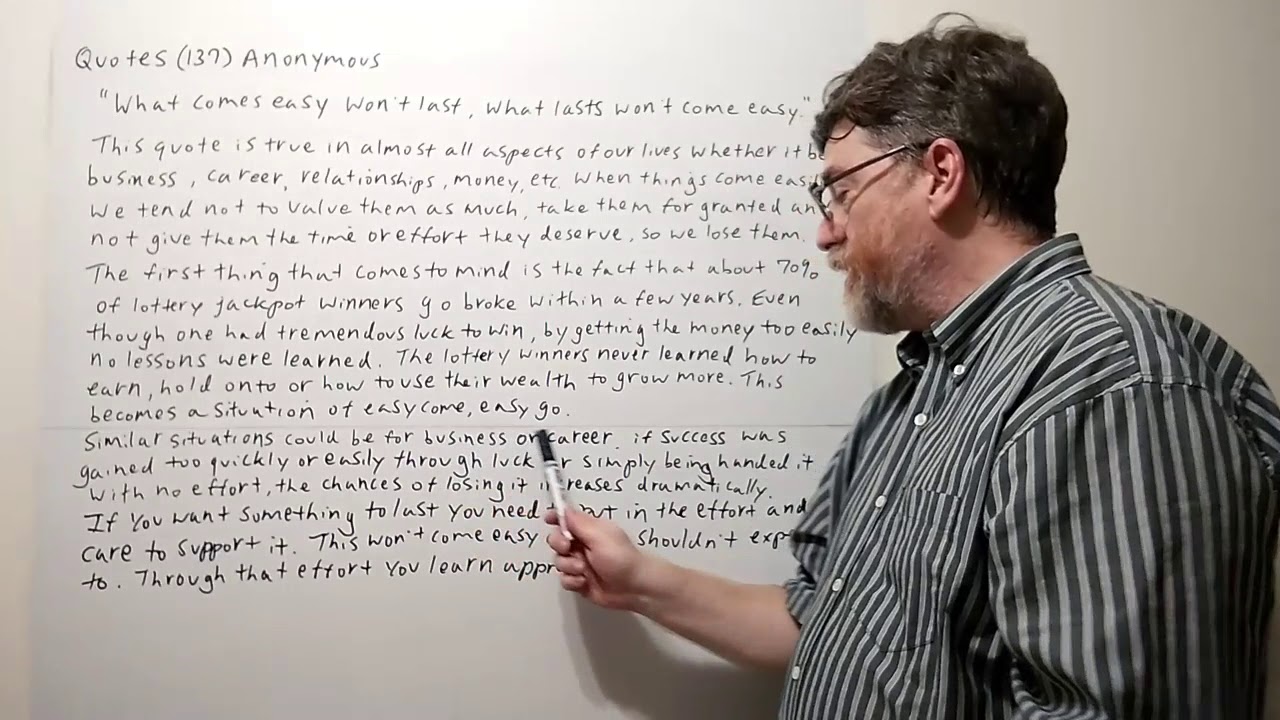 Quotes (137) Anonymous
"What comes easy won't last, what lasts won't come easy."
This quote is true in almost all aspects of our lives whether it be
business, career, relationships, money, etc. When things come easi
we tend not to value them as much, take them for granted an
not give them the time or effort they deserve, so we lose them.
The first thing that comes to mind is the fact that about 70%
of lottery jackpot winners go broke within a few years. Even
though one had tremendous luck to win, by getting the money too easily
no lessons were learned. The lottery winners never learned how to
earn, hold onto or how to use their wealth to grow more. This
becomes a situation of easy come, easy go.
Similar situations could be for business or career. if success was
gained too quickly or easily through luck or simply being handed it
with no effort, the chances of losing it increases dramatically.
If you want something to last you need put in the effort and
care to support it. This won't come easy shouldn't exp
to. Through that effort you learn appr